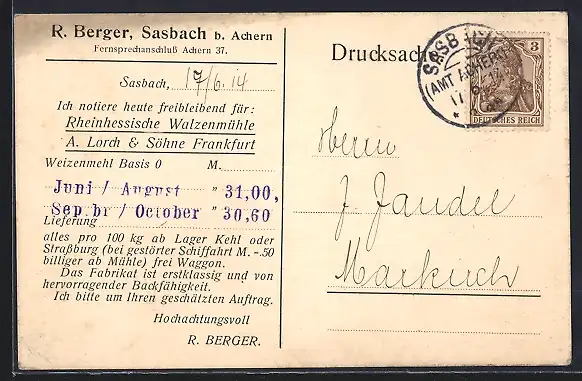 R. Berger, Sasbach b. Achern
Fernsprechanschluß Achern 37.
Sasbach, 17/6. 14
Ich notiere heute freibleibend für:
Rheinhessische Walzenmühle
A. Lorch & Söhne Frankfurt
Weizenmehl Basis 0 M.
Juni / August " 31,00,
Sep.br / October " 30,60
Lieferung
alles pro 100 kg ab Lager Kehl oder
Straßburg (bei gestörter Schiffahrt M. -.50
billiger ab Mühle) frei Waggon.
Das Fabrikat ist erstklassig und von
hervorragender Backfähigkeit.
Ich bitte um Ihren geschätzten Auftrag.
Hochachtungsvoll
R. BERGER.
Drucksache
SASB
(AMT ACHERN)
17.6.14
3
DEUTSCHES REICH
Herrn
J. Jandel
Markirch